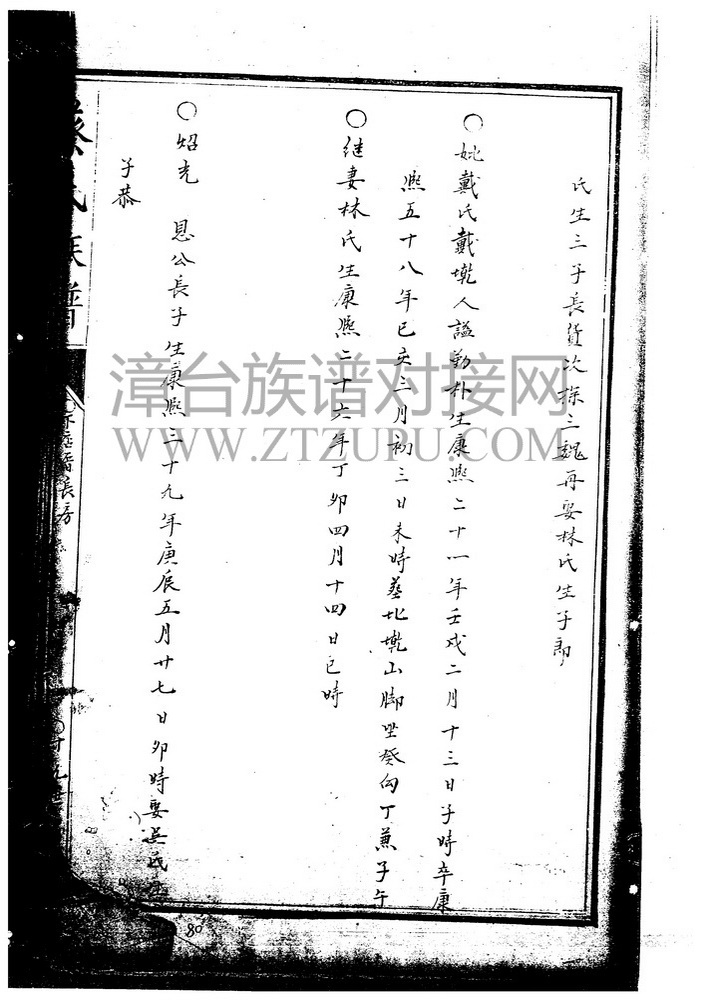 氏生三子長貨次採三魏再娶林氏生子郎
〇妣戴氏戴墘人謚勤朴生康熈二十一年壬戍二月十三日子時卒康
熈五十八年已亥三月初三日未時葬北墘山脚坐癸向丁兼子午
〇継妻林氏生康熈二十六年丁卯四月十四日巳時
〇炤光 恩公長子生康熈三十九年庚辰五月廿七日卯時娶吳氏生
子恭
蔡氏族譜
長房
80
漳台族谱对接网
WWW.ZTZUPU.COM